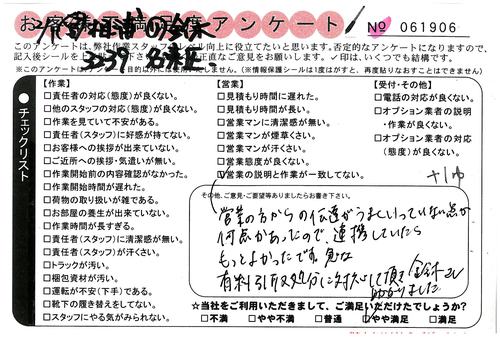 お客様不満足度アンケート
No 061906
このアンケートは、弊社作業スタッフのレベル向上に役立てたいと思います。否定的なアンケートになりますので、
記入後シールを上 正直なご意見をお願いします。✓印は、いくつでも結構です。
(※情報保護シールは1度はがすと、再度貼りなおすことはできません)
チェックリスト
【作業】
□責任者の対応(態度)が良くない。
□他のスタッフの対応(態度)が良くない。
□作業を見ていて不安がある。
□責任者(スタッフ)に好感が持てない。
□お客様への挨拶が出来ていない。
□ご近所への挨拶・気遣いが無い。
□作業開始前の内容確認がなかった。
□作業開始時間が遅れた。
□荷物の取り扱いが雑である。
□お部屋の養生が出来ていない。
□作業時間が長すぎる。
□責任者(スタッフ)に清潔感が無い。
□責任者(スタッフ)が汗くさい。
□トラックが汚い。
□梱包資材が汚い。
□運転が不安(下手)である。
□靴下の履き替えをしてない。
□スタッフにやる気がみられない。
【営業】
□見積もり時間に遅れた。
□見積もり時間が長い。
□営業マンに清潔感が無い。
□営業マンが煙草くさい。
□営業マンが汗くさい。
□営業態度が良くない。
□営業の説明と作業が一致してない。
【受付・その他】
□電話の対応が良くない。
□オプション業者の説明
・作業が良くない。
□オプション業者の対応
(態度)が良くない。
その他、ご意見・ご要望等ありましたらお書き下さい。
営業の方からの伝達がうまくいっていない点が
何点かあったので、連携していたら
もっとよかったです。急な
有料引取処分に対応して頂き
助かりました
☆当社をご利用いただきまして、ご満足いただけたでしょうか?
□不満 □やや不満 □普通 □やや満足 □満足